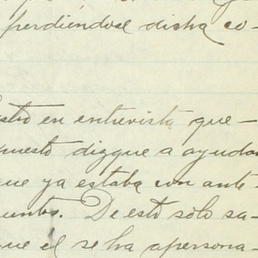 perdiéndose dicha co-
en entrevista que-
puesto dizque a ayudar
que ya estaba con ante-
De esto sólo sa-
que él se ha apersona-